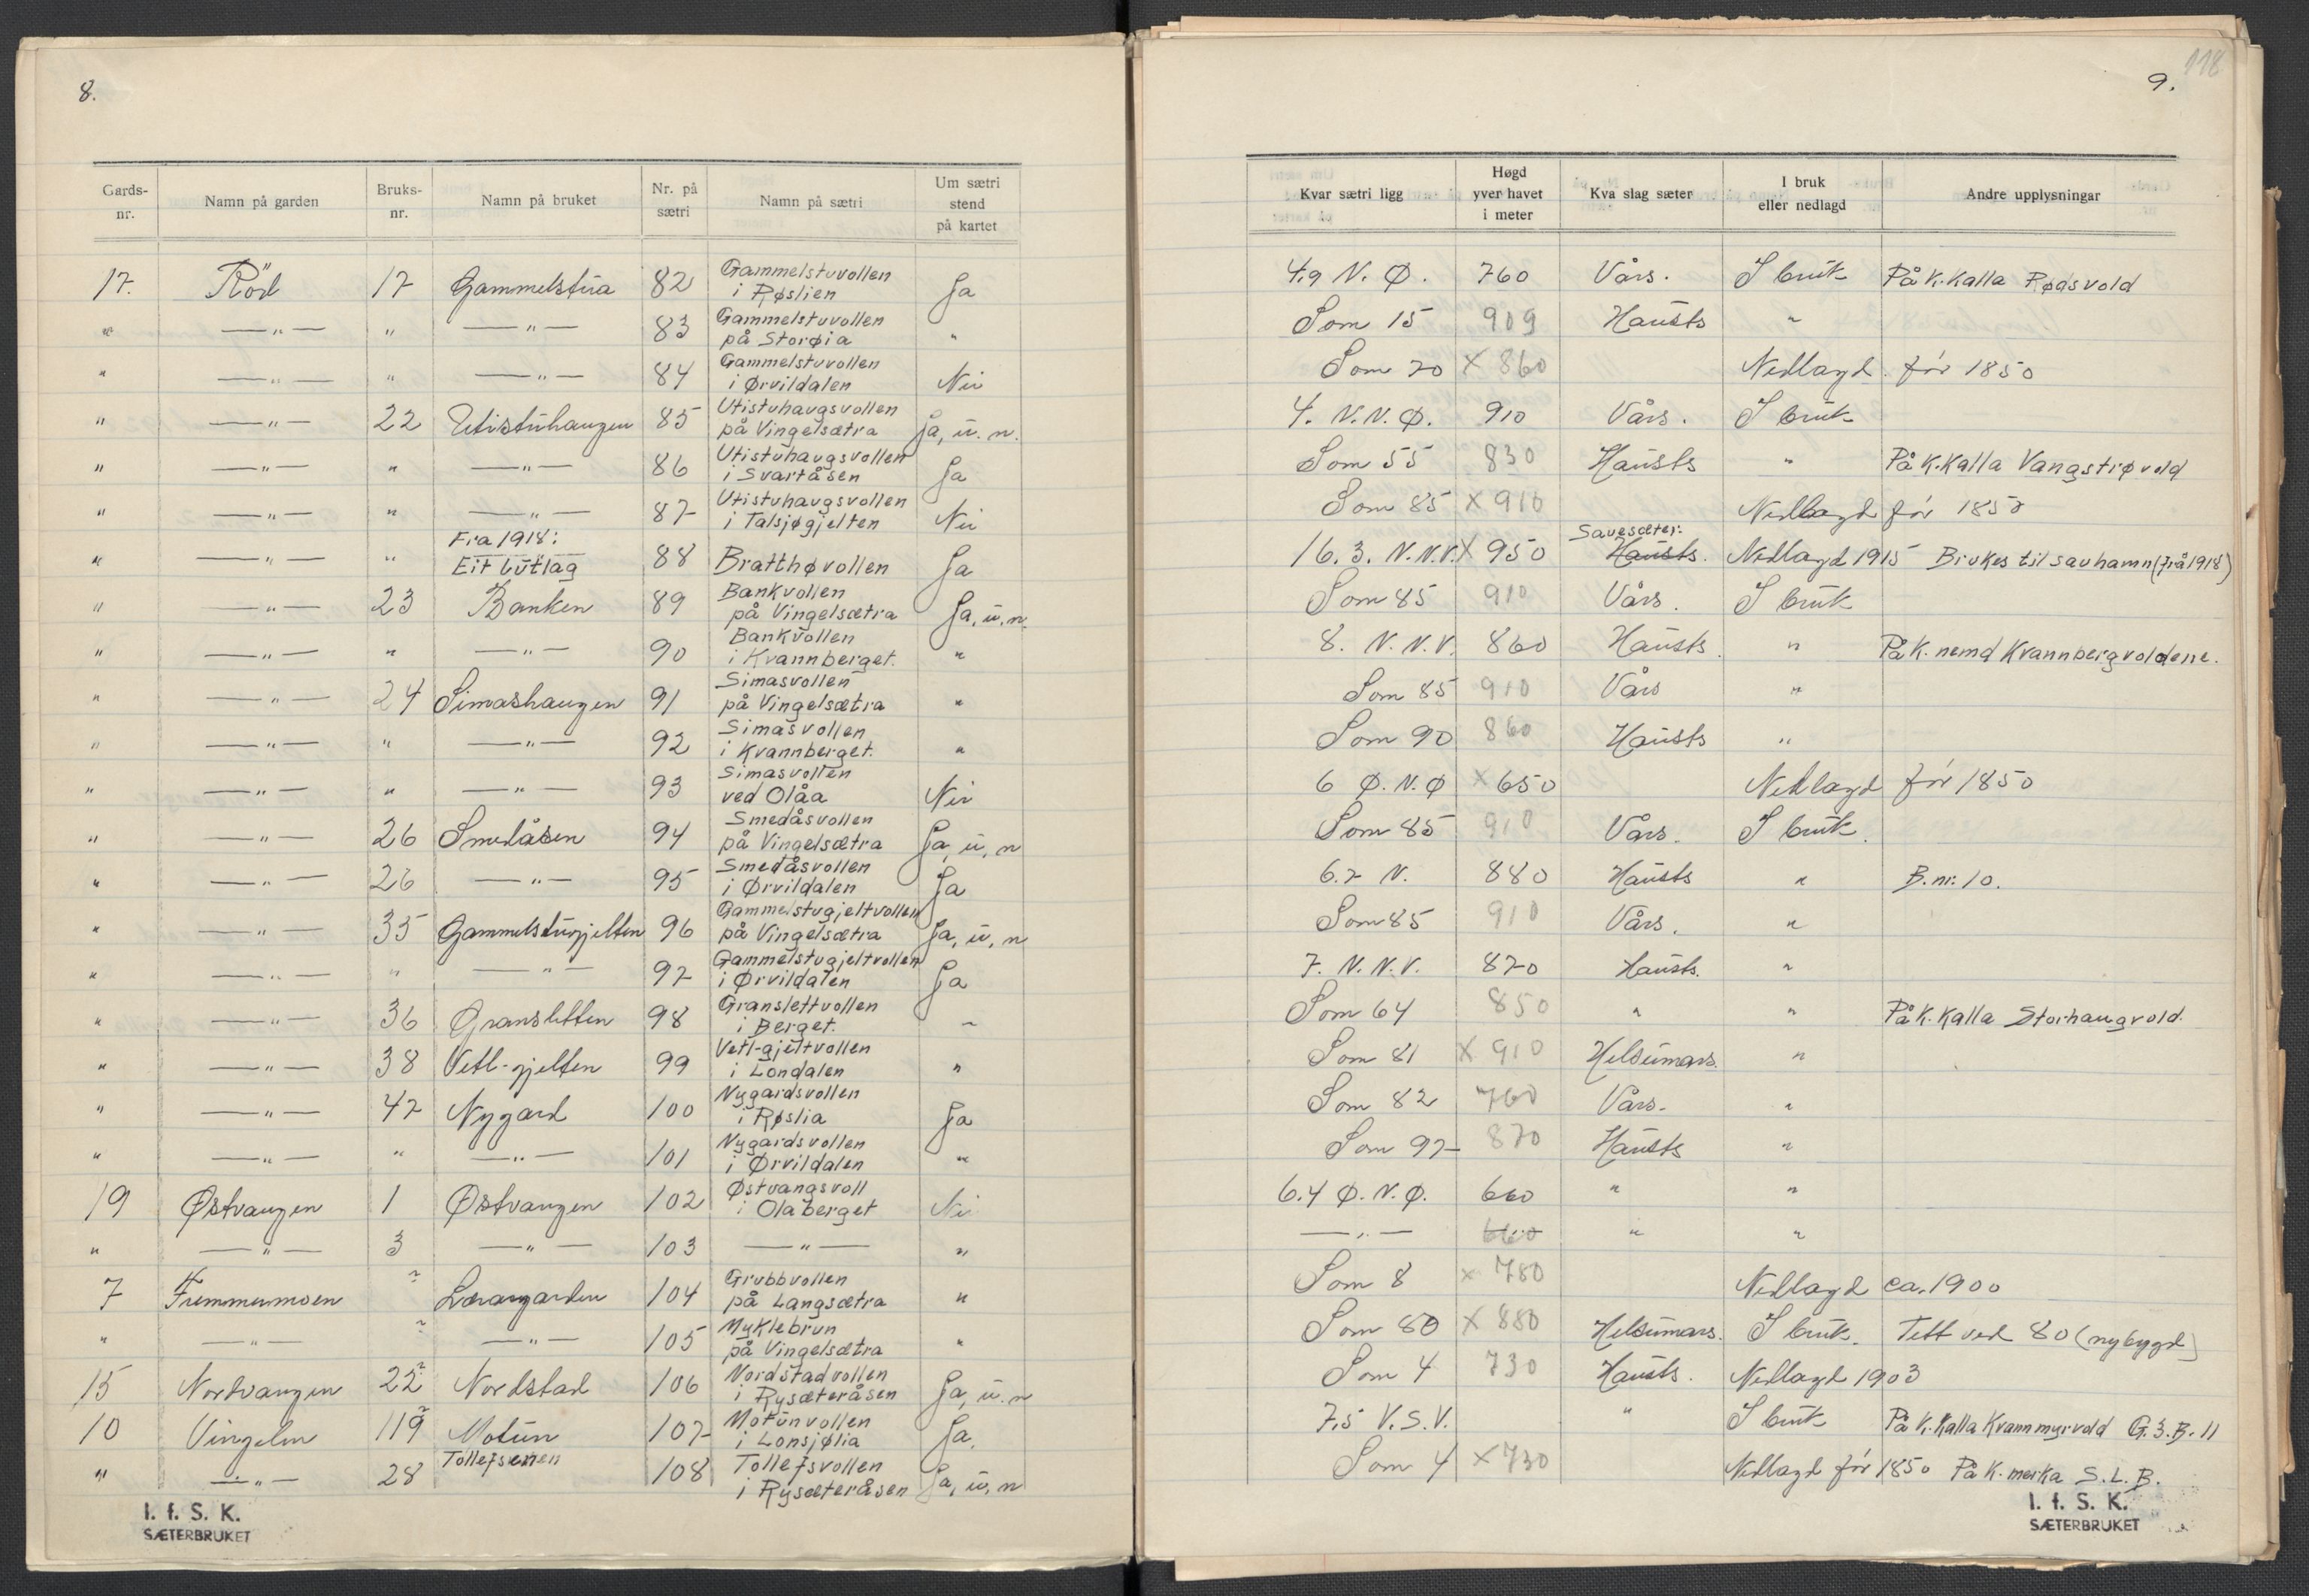 8.
Gards-nr. Namn på garden Bruks-nr. Namn på bruket Nr. på sætri Namn på sætri Um sætri stend på kartet
17. Röd 17 Gammelstua 82 Gammelstuvollen i Røslien Ja
" —"— " —"— 83 Gammelstuvollen på Storøia "
" —"— " —"— 84 Gammelstuvollen i Ørvildalen Nei
" —"— 22 Utistuhaugen 85 Utistuhaugsvollen på Vingelsætra Ja, u. n.
" —"— " —"— 86 Utistuhaugsvollen i Svartåsen Ja
" —"— " —"— 87 Utistuhaugsvollen i Talsjøgjelten Nei
" —"— " Fra 1918: Eit lutlag 88 Bratthøvollen Ja
" —"— 23 Banken 89 Bankvollen på Vingelsætra Ja, u. n.
" —"— " —"— 90 Bankvollen i Kvannberget. "
" —"— 24 Simashaugen 91 Simasvollen på Vingelsætra "
" —"— " —"— 92 Simasvollen i Kvannberget. "
" —"— " —"— 93 Simasvollen ved Olåa Nei
" —"— 26 Smedåsen 94 Smedåsvollen på Vingelsætra Ja, u, n
" —"— 26 —"— 95 Smedåsvollen i Ørvildalen Ja
" —"— 35 Gammelstugjelten 96 Gammelstugjeltvollen på Vingelsætra Ja, u, n
" —"— " —"— 97 Gammelstugjeltvollen i Ørvildalen Ja
" —"— 36 Gransletten 98 Granslettvollen i Berget. "
" —"— 38 Vetl-gjelten 99 Vetl-gjeltvollen i Londalen "
" —"— 42 Nygard 100 Nygardsvollen i Røslia Ja
" —"— " —"— 101 Nygardsvollen i Ørvildalen "
19 Østvangen 1 Østvangen 102 Østvangsvoll i Olaberget Nei
" —"— 3 —"— 103 —"— "
7 Fremmermoen ? Lærargarden 104 Grubbvollen på Langsætra "
" —"— ? —"— 105 Myklebrun på Vingelsætra "
15 Nordvangen 22? Nordstad 106 Nordstadvollen i Rysæteråsen Ja, u. n
10 Vingelen 119? Motun 107 Motunvollen i Lonsjølia Ja.
" —"— 28 Tollefsenen 108 Tollefsvollen i Rysæteråsen Ja, u, n
I. f. S. K.
SÆTERBRUKET
118
9.
Kvar sætri ligg Høgd yver havet i meter Kva slag sæter I bruk eller nedlagd Andre upplysningar
4.9 N. Ø. 760 Vårs. I bruk På K. Kalla Rødsvold
Som 15 909 Hausts "
Som 70 X 860 Nedlagd før 1850
4. N. N. Ø. 910 Vårs. I bruk
Som 55 830 Hausts " På K. Kalla Vangstrøvold
Som 85 X 910 Nedlagd før 1850
16.3. N.N.V. X 950 Savesæter: Hausts. Nedlagd 1915 Brukes til sauhamn (frå 1918)
Som 85 910 Vårs. I bruk
8. N. N. V. 860 Hausts. " På K. nemd Kvannbergvoldene.
Som 85 910 Vårs "
Som 90 860 Hausts "
6 Ø. N. Ø X 650 Nedlagd før 1850
Som 85 910 Vårs. I bruk.
6.2 N. 880 Hausts " B. nr. 10.
Som 85 910 Vårs. "
7. N. N. V. 870 Hausts. "
Som 64 850 " " På K. Kalla Storhaugvold.
Som 81 X 910 Helsumars. "
Som 82 760 Vårs. "
Som 97 870 Hausts "
6.4 Ø. N. Ø. 660 " "
—"— 660 " "
Som 8 X 780 Nedlagd ca. 1900
Som 80 X 880 Helsumars. I bruk. Tett ved 80 (nybygd)
Som 4 730 Hausts. Nedlagd 1903
7.5 V. S. V. " I bruk På K. Kalla Kvannmyrvold G. 3. B. 11
Som 4 X 730 Nedlagd før 1850 På K. merka S. L. B.
I. f. S. K.
SÆTERBRUKET